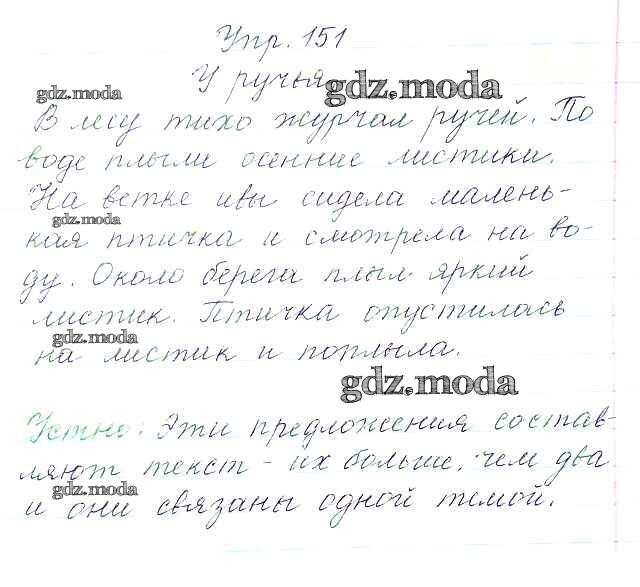 Упр. 151
У ручья
gdz.moda
gdz.moda
В лесу тихо журчал ручей. По
воде плыли осенние листики.
На ветке ивы сидела малень-
gdz.moda
кая птичка и смотрела на во-
ду. Около берега плыл яркий
листик. Птичка опустилась
gdz.moda
на листик и поплыла.
gdz.moda
Устно: Эти предложения состав-
ляют текст - их больше, чем два
gdz.moda
и они связаны одной темой.